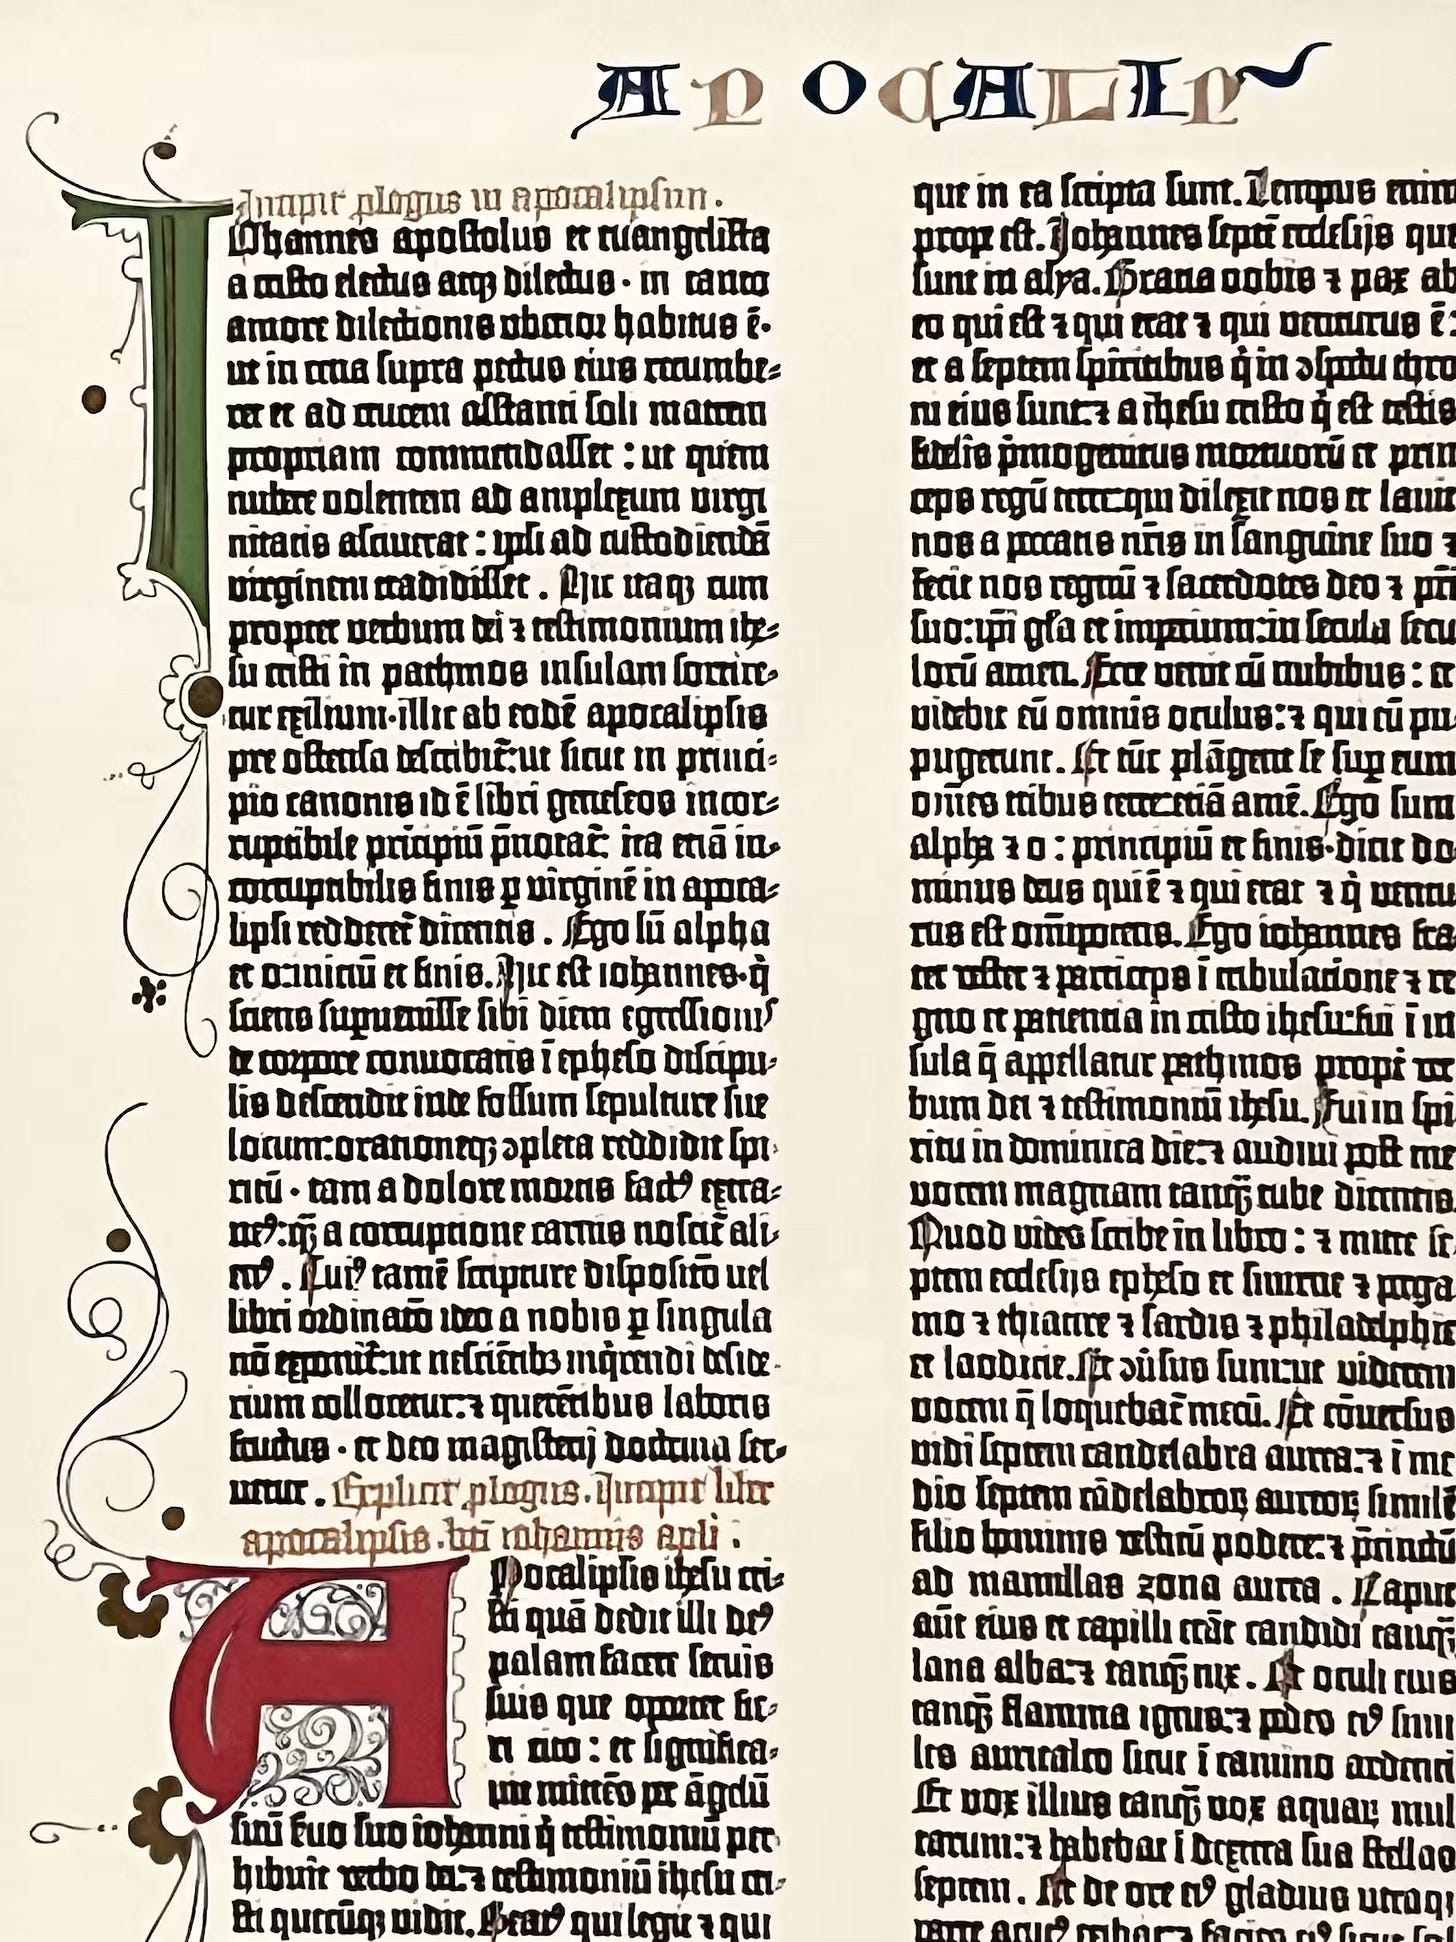 APOCALIP
Incipit plogus in apocalipsim.
IOhannes apostolus et euangelista
a cristo electus atq; dilectus · in tanto
amore dilectionis uberior habitus ē·
ut in cena supra pectus eius recumbe-
ret et ad crucem astanti soli matrem
propriam commendasset : ut quem
nubere volentem ad amplexum virgi
nitatis asciuerat : ipsi ad custodiendā
virginem tradidisset . Hic itaq; cum
propter verbum dei ⁊ testimonium ihe-
su cristi in pathmos insulam sortire-
tur exilium·illic ab eodē apocalipsis
pre ostensa describit̄:ut sicut in princi-
pio canonis id ē libri geneseos incor-
ruptibile prīcipiū p̄notat̄: ita etiā in-
corruptibilis finis ꝑ virginē in apoca-
lipsi redderet̄ dicentis . Ego sū alpha
et o:iniciū et finis. Hic est iohannes·q̄
sciens supuenisse sibi diem egressionis
de corpore conuocatis ī epheso discipu-
lis descendit inde fossum sepulture sue
locum:orationeq; ↄpleta reddidit spi-
ritū · tam a dolore mortis factꝰ extra-
neꝰ:q̄ a corruptione carnis noscit̄ ali-
enꝰ . Cuiꝰ tamē scripture dispositō uel
libri ordinatō ideo a nobis ꝑ singula
nō exponit̄:ut nesciētib; inq̄rendi desidē-
rium collocetur:⁊ querētibus laboris
fructus · et deo magisterij doctrina ser-
uetur . Explicit plogus. Incipit liber
apocalipsis.bti iohannis apli .
APocalipsis ihesu cri-
sti quā dedit illi deꝰ
palam facere seruis
suis que oportet fie-
ri cito : et significa-
uit mittēs per āgelū
suū seruo suo iohanni q̄ testimoniū per-
hibuit verbo dei:⁊ testimoniū ihesu cri-
sti quecūq; vidit. Beatꝰ qui legit ⁊ qui
que in ea scripta sunt. Tempus enim
prope est. Johannes septē ecclesijs que
sunt in asya. Gratia vobis ⁊ pax ab
eo qui est ⁊ qui erat ⁊ qui venturus ē:
et a septem spiritibus q̄ in ↄspectu thro
ni eius sunt:⁊ a ihesu cristo q̄ est testis
fidelis p̄mogenitus mortuorū et prin
ceps regū terre:qui dilexit nos et lauit
nos a peccatis nr̄is in sanguine suo ⁊
fecit nos regnū ⁊ sacerdotes deo ⁊ pri
suo:ipī glā et imperium:in secula secu
lorū amen. Ecce venit cū nubibus : et
videbit eū omnis oculus:⁊ qui eū pu
pugerunt. Et tūc plāgent se sup eum
omēs tribus terre:etiā amē. Ego sum
alpha ⁊ o : principiū et finis·dicit do
minus deus qui ē ⁊ qui erat ⁊ q̄ ventu
rus est omīpotens. Ego iohannes fra
ter vester ⁊ particeps ī tribulatione ⁊ re
gno et patientia in cristo ihesu:fui ī in
sula q̄ appellatur pathmos propt̄ ver
bum dei ⁊ testimoniū ihesu. Fui in spi
ritu in dominica die:⁊ audiui post me
vocem magnam tanq̄ tube dicentis.
Quod vides scribe in libro : ⁊ mitte se
ptem ecclesijs epheso et smirne ⁊ perga
mo ⁊ thiatire ⁊ sardis ⁊ philadelphie
et laodicie. Et ↄūsus sum:ut viderem
vocem q̄ loquebat̄ mecū. Et cōuersus
vidi septem candelabra aurea:⁊ ī me
dio septem cādelabroꝝ aureoꝝ simile
filio hominis vestitū podere:⁊ p̄cinctū
ad mamillas zona aurea . Caput
aūt eius et capilli erāt candidi tanq̄
lana alba:⁊ tanq̄ nix . Et oculi eius
tanq̄ flamma ignis:⁊ pedes eꝰ simi
les auricalco sicut ī camino ardenti
Et vox illius tanq̄ vox aquaꝝ mul
tarum:⁊ habebat ī dextera sua stellas
septem . Et de ore eꝰ gladius utraq;